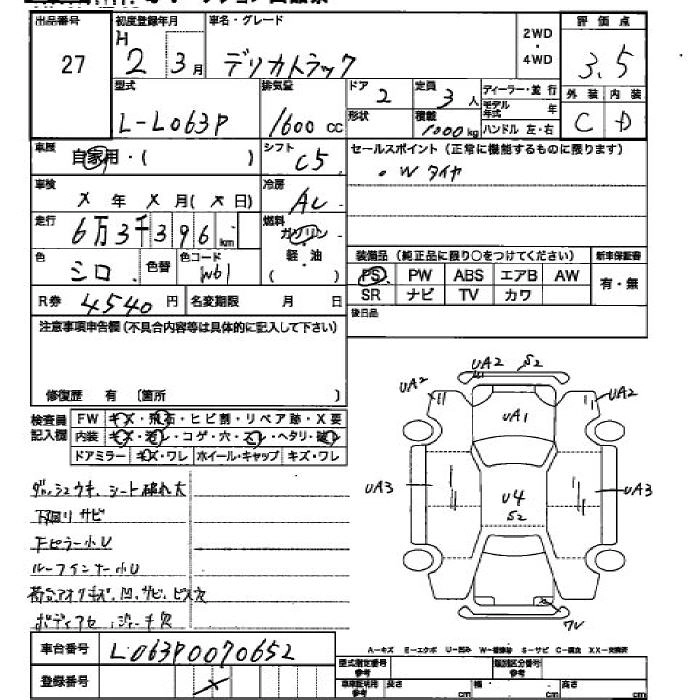 出品番号 27
初度登録年月 H 2 3月
車名・グレード デリカトラック
2WD ・ 4WD
評価点 3.5
型式 L-L063P
排気量 1600 cc
ドア 2
定員 3人
形状
積載 1000kg
ディーラー・並行
モデル年式 年
ハンドル 左・右
外装 C
内装 D
車歴 自家用・( )
シフト C5
セールスポイント(正常に機能するものに限ります)
・Wタイヤ
車検 X年X月(X日)
冷房 AC
走行 6万3千396km
燃料 ガソリン 軽・油 ( )
色 シロ
色替
色コード W61
装備品(純正品に限り○をつけてください)
新車保証書 有・無
PS PW ABS エアB AW
SR ナビ TV カワ
R券 4540円
名変期限 月 日
後日品
注意事項申告欄(不具合内容等は具体的に記入して下さい)
修復歴 有 〔箇所 〕
検査員記入欄
FW キズ・飛石・ヒビ割・リペア跡・X要
内装 コゲ・穴・ヘタリ
ドアミラー キズ・ワレ ホイール・キャップ キズ・ワレ
シート破れ大
下回りサビ
Fピラー小U
ルーフインナー小U
UA2 S2
UA2
UA2
UA1
UA3
UA3
U4
S2
A-キズ E-エクボ U-凹み W-補修跡 S-サビ C-腐食 XX-交換済
車台番号 L063P0070652
登録番号 X
型式指定番号 参考
類別区分番号 参考
車庫証明用 参考 長さ cm 幅 cm 高さ cm